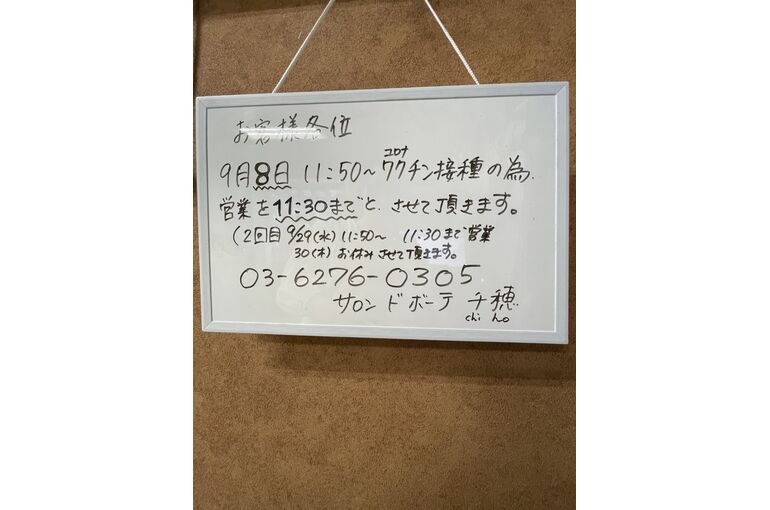 お客様各位
コロナ
9月8日 11:50～ワクチン接種の為、
営業を11:30までと、させて頂きます。
(2回目 9/29(水) 11:50～ 11:30まで営業
30(木) お休みさせて頂きます。
03-6276-0305
サロンドボーテ 千穂
chi ho